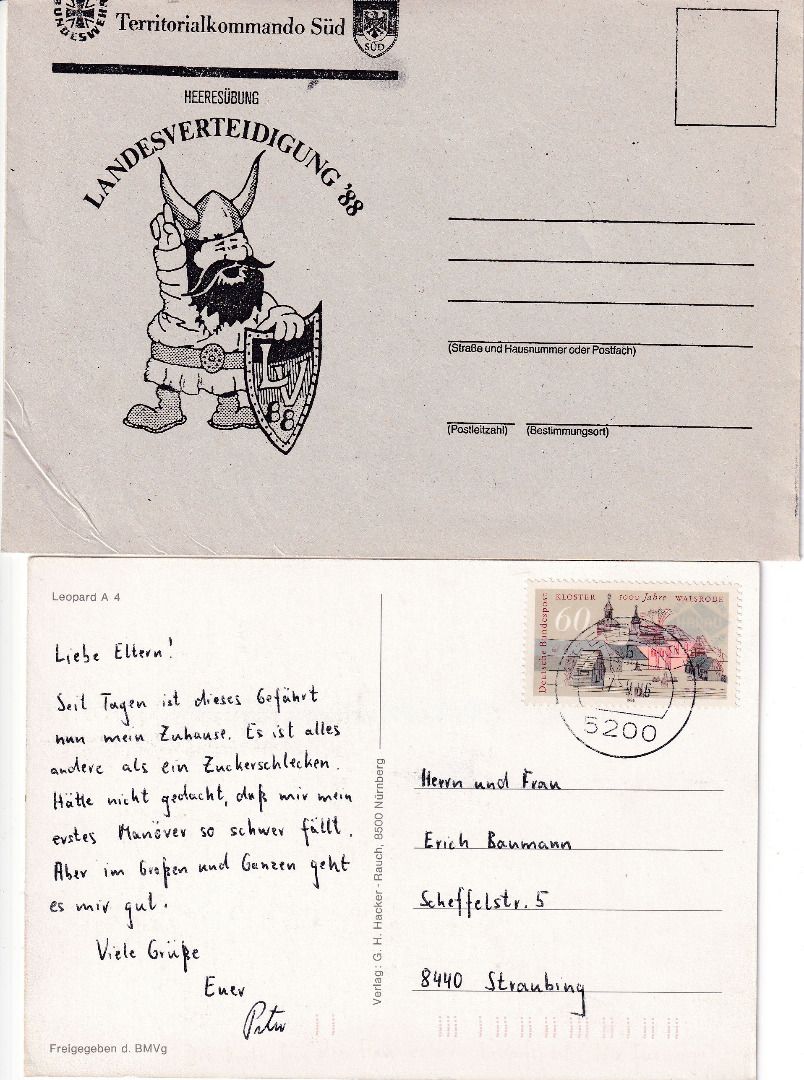 BUNDESWEHR
Territorialkommando Süd
SÜD
HEERESÜBUNG
LANDESVERTEIDIGUNG '88
LV
88
(Straße und Hausnummer oder Postfach)
(Postleitzahl) (Bestimmungsort)
Leopard A 4
Liebe Eltern!
Seit Tagen ist dieses Gefährt
nun mein Zuhause. Es ist alles
andere als ein Zuckerschlecken.
Hätte nicht gedacht, daß mir mein
erstes Manöver so schwer fällt.
Aber im Großen und Ganzen geht
es mir gut.
Viele Grüße
Euer
Peter
Freigegeben d. BMVg
Verlag: G. H. Hacker - Rauch, 8500 Nürnberg
Deutsche Bundespost
KLOSTER 1000 Jahre WALSRODE
60
5200
Herrn und Frau
Erich Baumann
Scheffelstr. 5
8440 Straubing